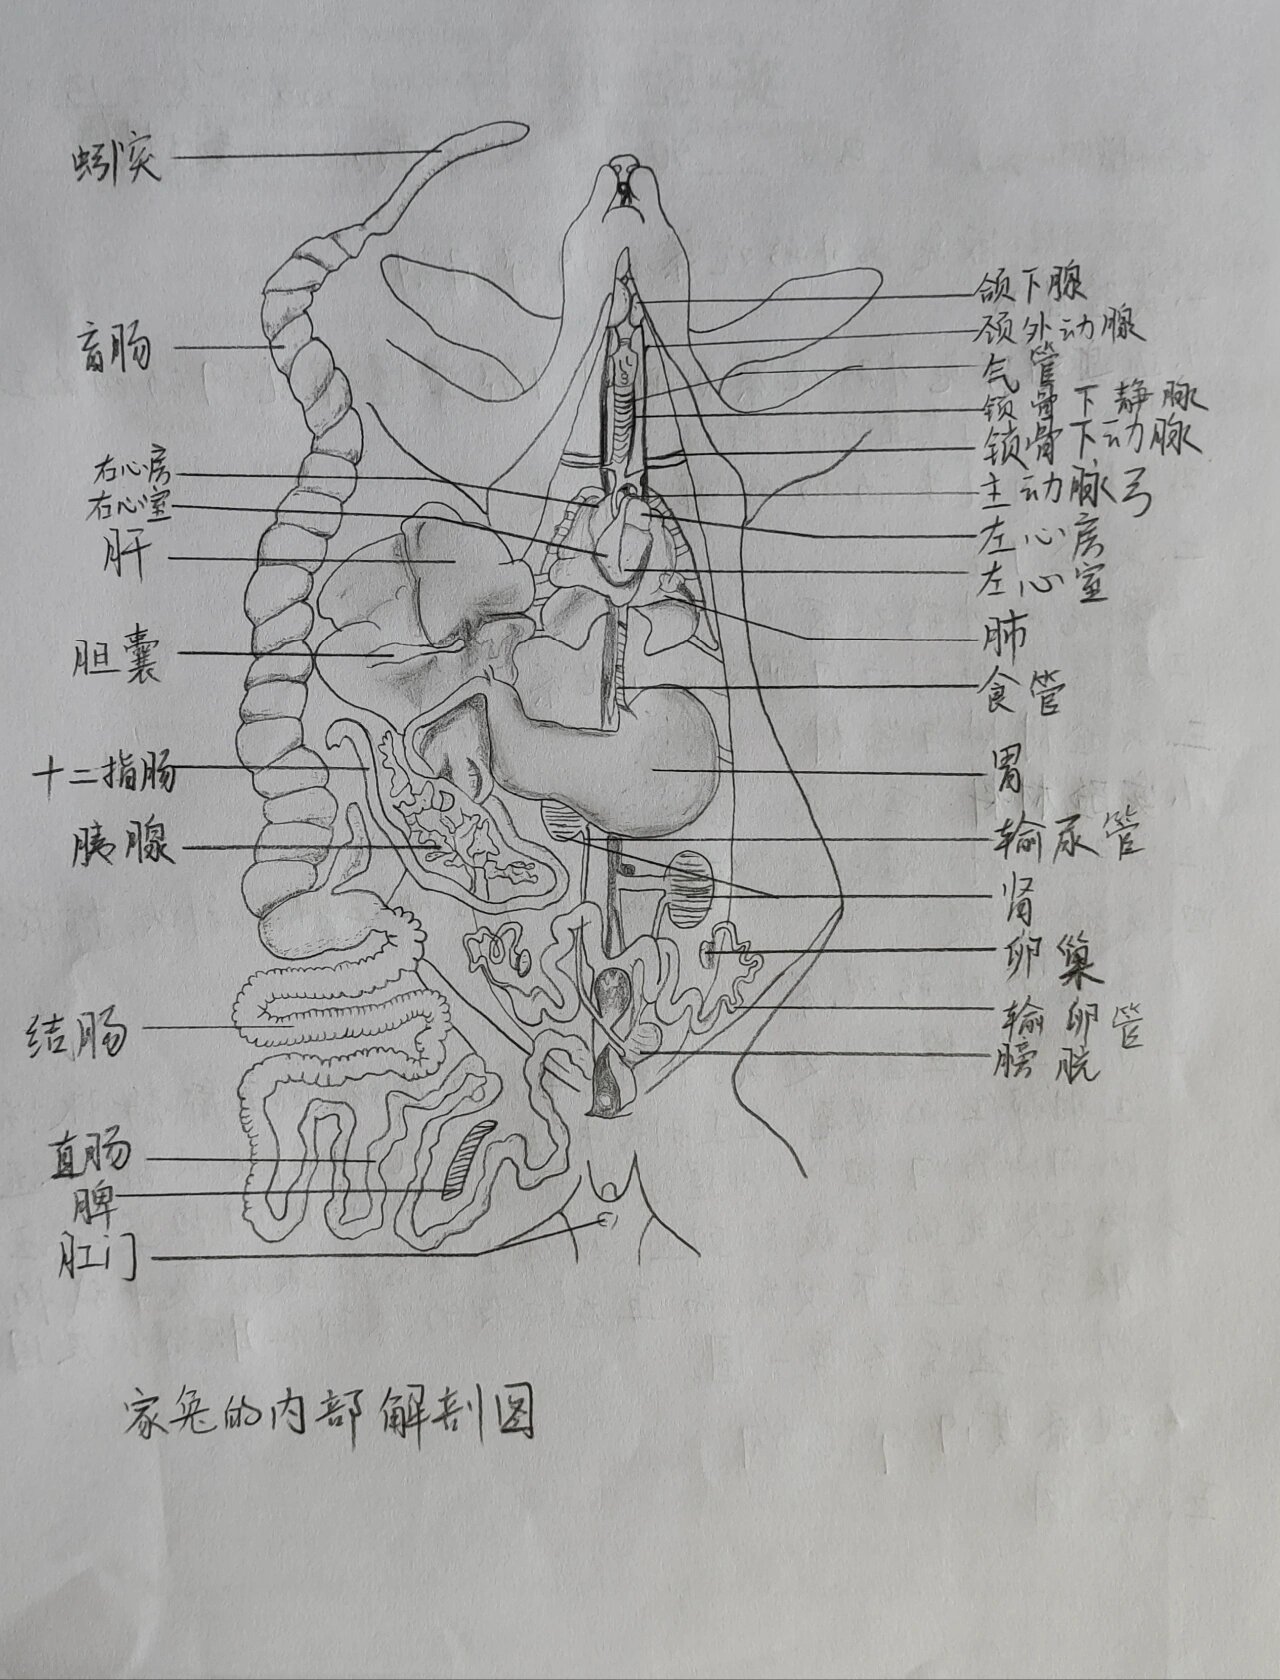 蚓突
盲肠
右心房
右心室
肝
胆囊
十二指肠
胰腺
结肠
直肠
脾
肛门
颌下腺
颈外动腺
气管
锁骨下静脉
锁骨下动脉
主动脉弓
左心房
左心室
肺
食管
胃
输尿管
肾
卵巢
输卵管
膀胱
家兔的内部解剖图